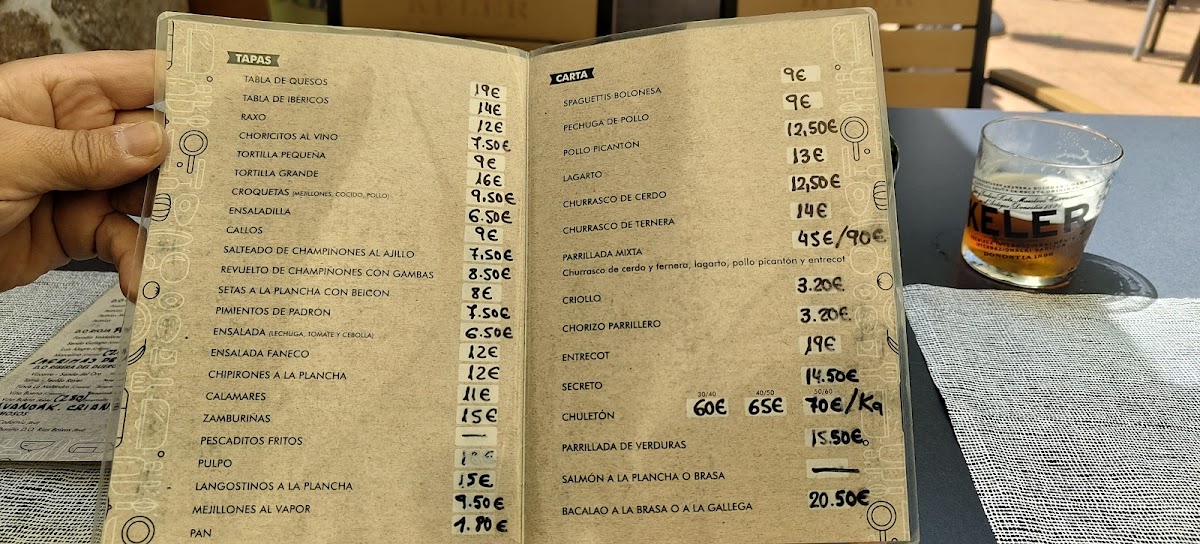 KELER
TAPAS
TABLA DE QUESOS 19€
TABLA DE IBERICOS 14€
RAXO 12€
CHORICITOS AL VINO 7.50€
TORTILLA PEQUEÑA 9€
TORTILLA GRANDE 16€
CROQUETAS (MEJILLONES, COCIDO, POLLO) 9.50€
ENSALADILLA 6.50€
CALLOS 9€
SALTEADO DE CHAMPIÑONES AL AJILLO 7.50€
REVUELTO DE CHAMPIÑONES CON GAMBAS 8.50€
SETAS A LA PLANCHA CON BEICON 8€
PIMIENTOS DE PADRON 7.50€
ENSALADA (LECHUGA, TOMATE Y CEBOLLA) 6.50€
ENSALADA FANECO 12€
CHIPIRONES A LA PLANCHA 12€
CALAMARES 11€
ZAMBURIÑAS 15€
PESCADITOS FRITOS —
PULPO
LANGOSTINOS A LA PLANCHA 15€
MEJILLONES AL VAPOR 9.50€
PAN 1.80€
CARTA
SPAGUETTIS BOLONESA 9€
PECHUGA DE POLLO 9€
POLLO PICANTÓN 12,50€
LAGARTO 13€
CHURRASCO DE CERDO 12,50€
CHURRASCO DE TERNERA 14€
PARRILLADA MIXTA 45€/90€
Churrasco de cerdo y ternera, lagarto, pollo picanton y entrecot
CRIOLLO 3.20€
CHORIZO PARRILLERO 3.20€
ENTRECOT 19€
SECRETO 14.50€
30/40 40/50 50/60
CHULETÓN 60€ 65€ 70€/Kg
PARRILLADA DE VERDURAS 15.50€
SALMÓN A LA PLANCHA O BRASA —
BACALAO A LA BRASA O A LA GALLEGA 20.50€
KELER
DONOSTIA 1898